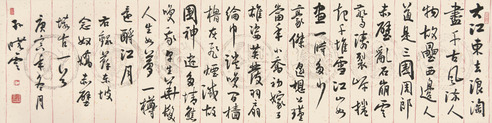 大江東去浪淘
盡千古風流人
物故壘西邊人
道是三國周郎
赤壁亂石崩雲
驚濤裂岸捲
起千堆雪江山如
畫一時多少
豪傑遙想公瑾
當年小喬初嫁了
雄姿英發羽扇
綸巾談笑間檣
櫓灰飛煙滅故
國神遊多情應
笑我早生華髮
人生如夢一樽
還酹江月
蘇東坡
念奴嬌赤壁
懷古一首
年冬月
孫曉雲